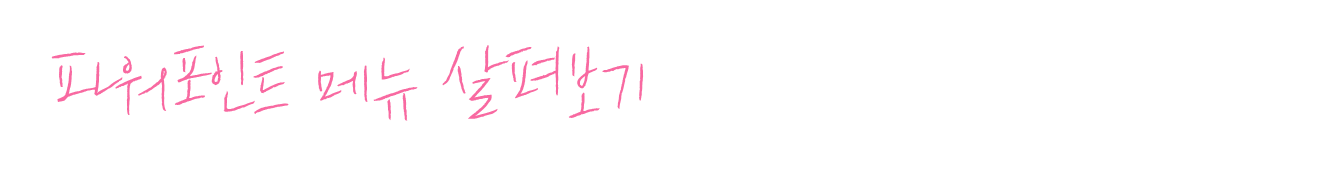 파워포인트 메뉴 살펴보기